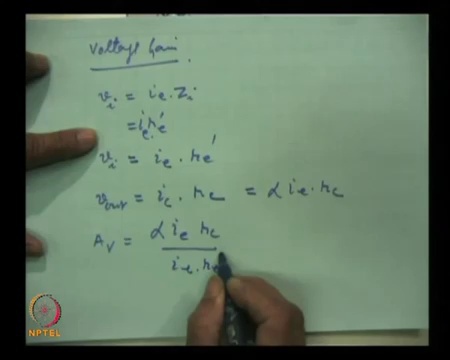 Voltage Gain
v_i = i_e . Z_i
= i_e r_e'
v_i = i_e . r_e'
v_out = i_c . r_c = α i_e . r_c
A_v = α i_e r_c
i_e . r_e
NPTEL